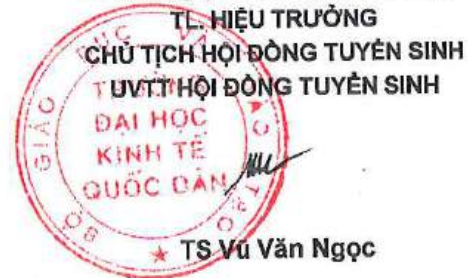 TL. HIỆU TRƯỞNG
CHỦ TỊCH HỘI ĐỒNG TUYỂN SINH
UVTT HỘI ĐỒNG TUYỂN SINH
BỘ GIÁO DỤC VÀ ĐÀO TẠO
TRƯỜNG
ĐẠI HỌC
KINH TẾ
QUỐC DÂN
TS Vũ Văn Ngọc